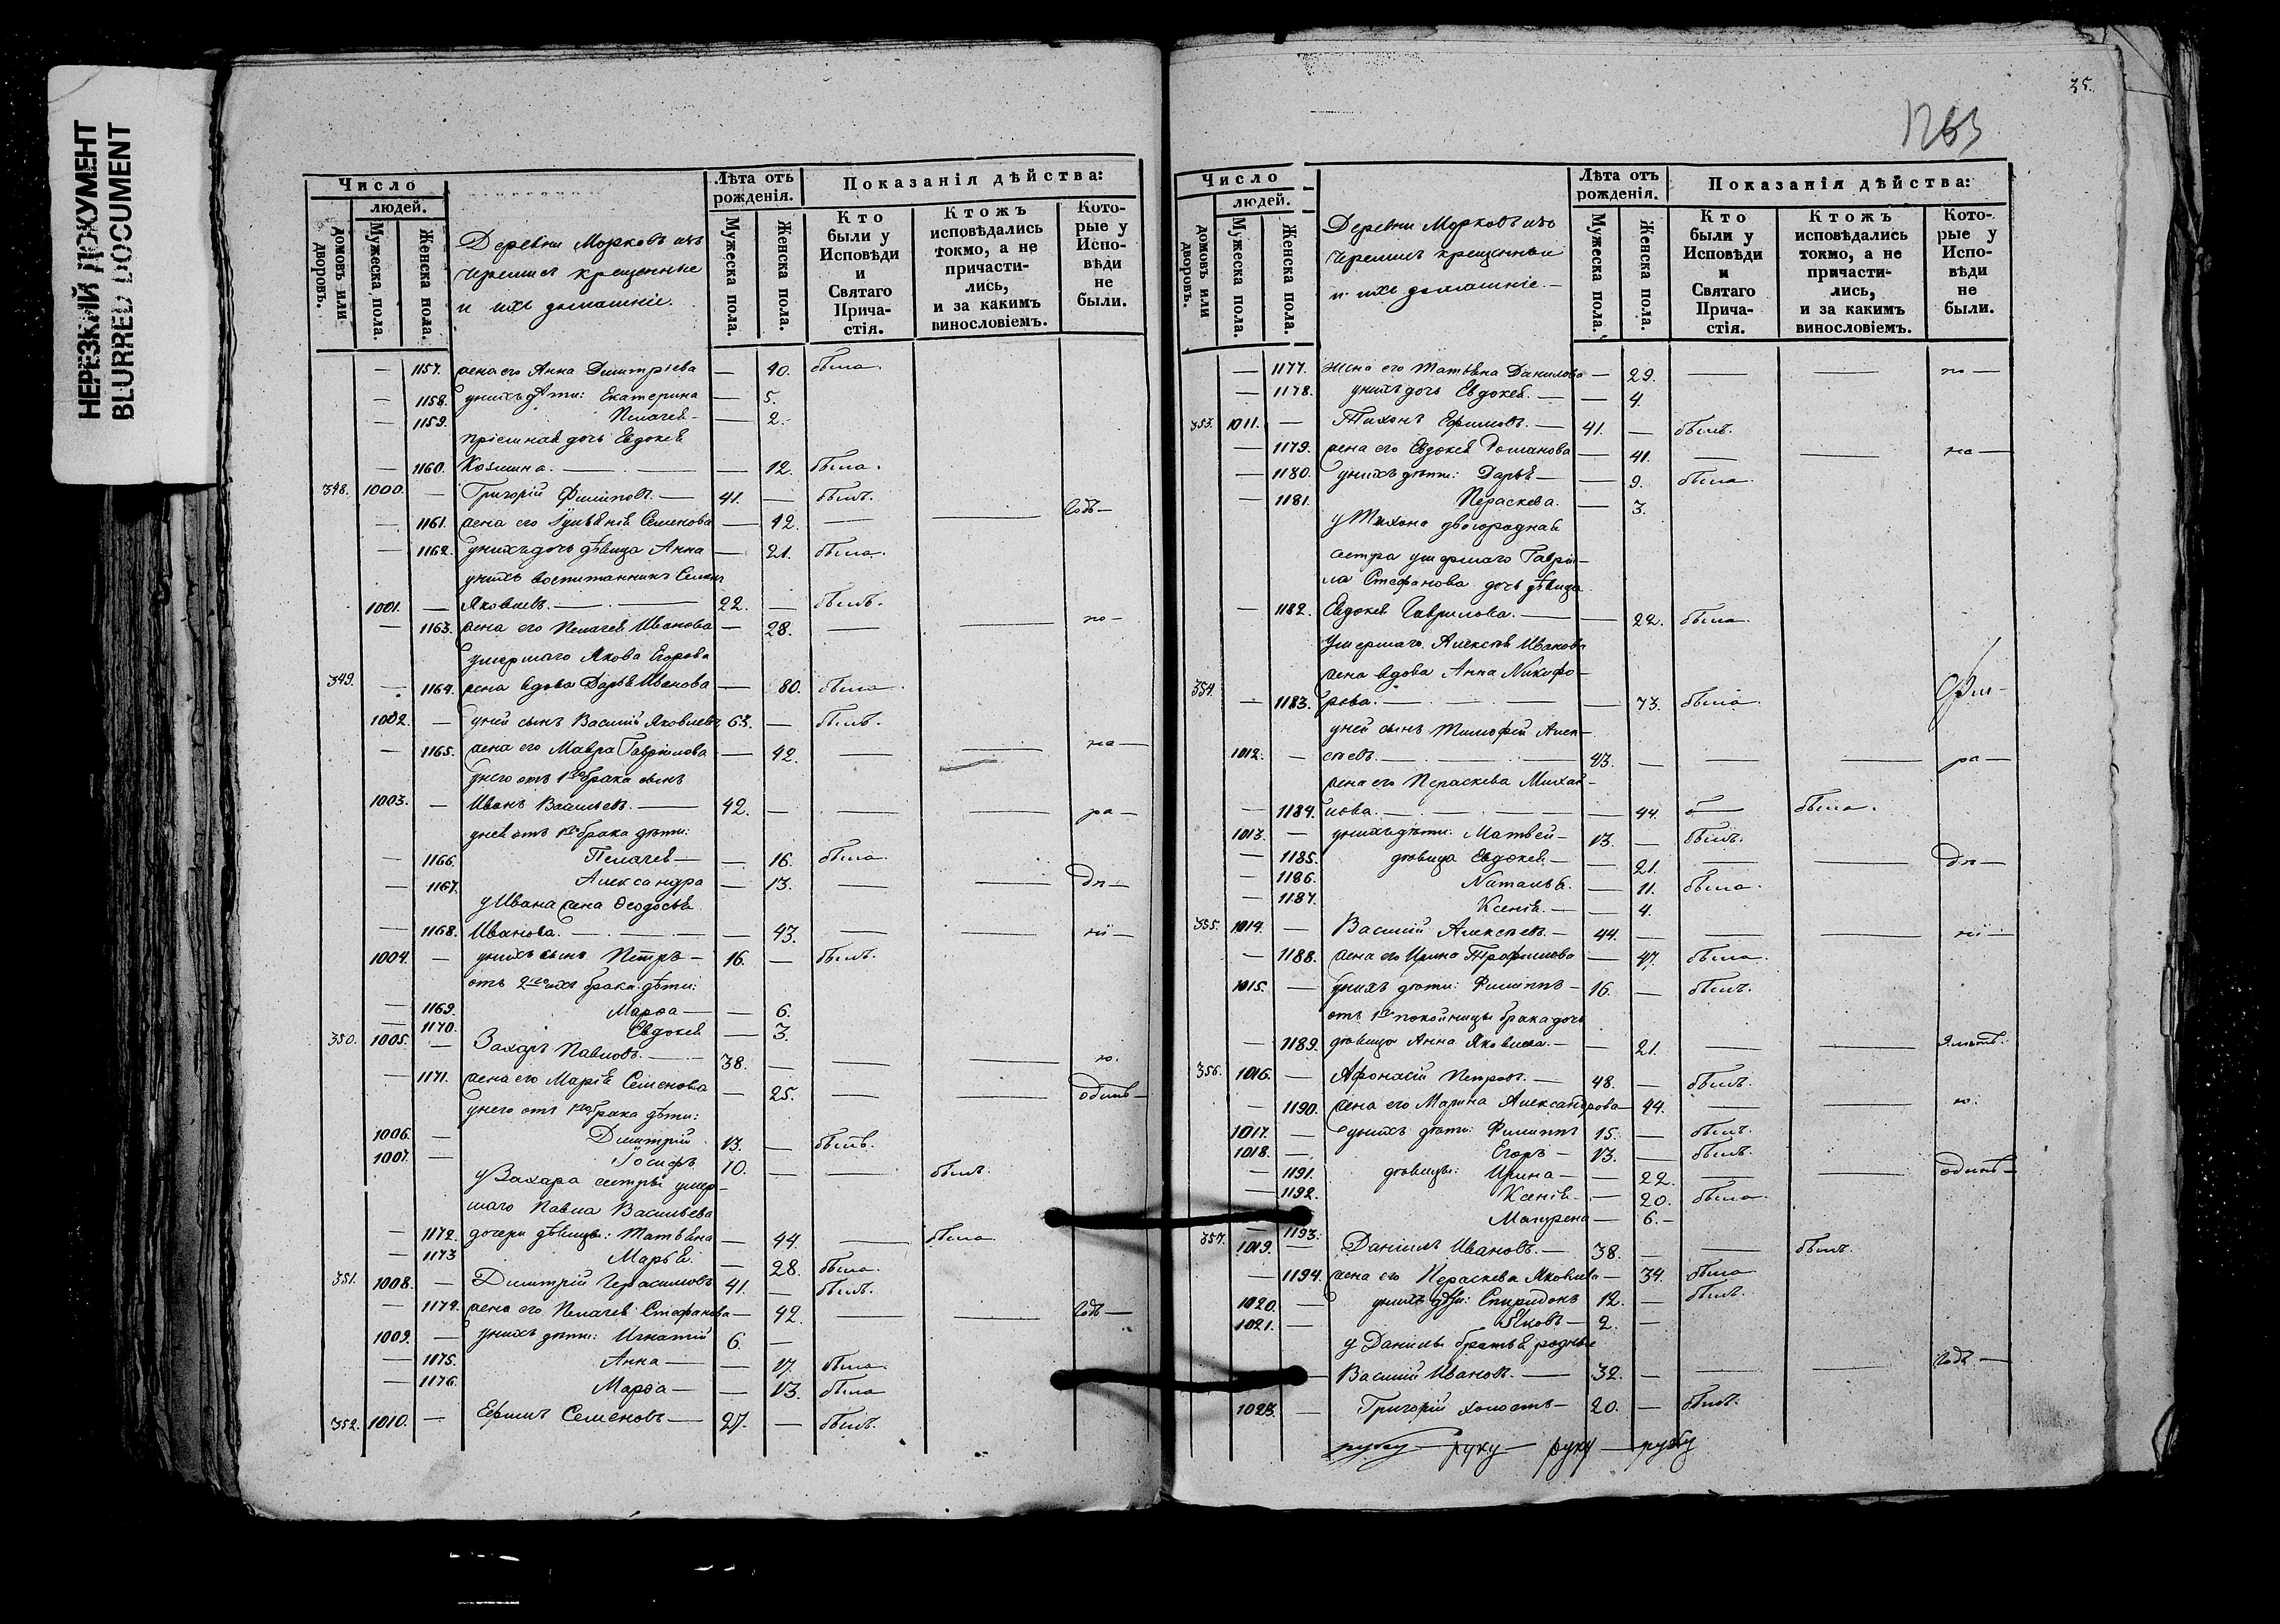 НЕРЕЗКИЙ ДОКУМЕНТ
BLURRED DOCUMENT
Число
людей.
домовъ или дворовъ.
Мужеска пола.
Женска пола.
Деревни Морковъ изъ
черемисъ крещенные
и ихъ домашніе.
Лѣта отъ рожденія.
Мужеска пола.
Женска пола.
Показанія дѣйства:
Кто были у Исповѣди и Святаго Причастія.
Ктожъ исповѣдались токмо, а не причастились, и за какимъ винословіемъ.
Которые у Исповѣди не были.
— 1157. жена его Анна Димитріева — 40. была.
— 1158. у нихъ дѣти: Екатерина — 5.
— 1159. Пелагея — 2.
пріемная дочь Евдокея
— 1160. Козмина. — 12. была.
348. 1000. — Григорій Филиповъ. — 41. — былъ.
— 1161. жена его Семенова — 42. — — Годъ —
— 1162. у нихъ дочь дѣвица Анна — 21. была.
у нихъ воспитанникъ Семенъ
1001. — Яковлевъ. — 22. — былъ.
— 1163. жена его Пелагея Иванова — 28. — — по —
умершаго Якова Егорова
349. — 1164. жена вдова Дарья Иванова — 80. была.
1002. — у ней сынъ Василій Яковлевъ 63. — былъ.
— 1165. жена его Мавра Гаврилова — 42. — — на —
у него отъ 1го брака сынъ
1003. — Иванъ Васильевъ. — 42. — — — ра —
у нея отъ 1го брака дѣти:
— 1166. Пелагея — — 16. была.
— 1167. Александра — 13. — — дѣ —
у Ивана жена Ѳеодосья
— 1168. Иванова. — — 43. — — ніи —
1004. — у нихъ сынъ Петръ — 16. — былъ.
отъ 2го ихъ брака дѣти:
— 1169. Марѳа — — 6.
— 1170. Евдокея — 3.
350. 1005. — Захаръ Павловъ. — 38. — — ю.
— 1171. жена его Марія Семенова — 25. — — одинъ —
у него отъ 1го брака дѣти:
1006. — Димитрій. 13. — былъ.
1007. — Іосифъ 10. — — былъ.
у Захара сестры умер-
шаго Павла Васильева
— 1172. дочери дѣвицы: Татьяна — 44. — была.
— 1173 Марья. — 28. была.
351. 1008. — Димитрій Герасимовъ 41. — былъ.
— 1174. жена его Пелагея Стефанова — 42. — — Годъ —
1009. — у нихъ дѣти: Игнатій 6. —
— 1175. Анна — — 17. была.
— 1176. Марѳа — — 13. была
352. 1010. — Ефимъ Семеновъ — 27. — былъ.
35.
1263
Число
людей.
домовъ или дворовъ.
Мужеска пола.
Женска пола.
Деревни Морковъ изъ
черемисъ крещенные
и ихъ домашніе. —
Лѣта отъ рожденія.
Мужеска пола.
Женска пола.
Показанія дѣйства:
Кто были у Исповѣди и Святаго Причастія.
Ктожъ исповѣдались токмо, а не причастились, и за какимъ винословіемъ.
Которые у Исповѣди не были.
— 1177. жена его Татьяна Данилова — 29. — — по —
— 1178. у нихъ дочь Евдокея. — — 4.
353. 1011. — Тихонъ Ефимовъ. — 41. — былъ.
— 1179. жена его Евдокея Романова — 41. — — на —
— 1180. у нихъ дѣти: Дарья — — 9. была.
— 1181. Пераскева. — 3.
у Тихона двоюродная
сестра умершаго Гаврі-
ла Стефанова дочь дѣвица
— 1182. Евдокея Гаврилова. — — 22. была.
умершаго Алексѣя Иванова
жена вдова Анна Никифо-
354. — 1183. рова. — — 73. была.
у ней сынъ Тимофей Алек-
1012. — сѣевъ. — 43. — — — ра —
жена его Пераскева Михай-
— 1184. лова. — — 44. — была.
1013. — у нихъ дѣти: Матвей — 13. — былъ.
— 1185. дѣвица Евдокея. — — 21. — — дѣ —
— 1186. Наталья. — 11. была.
— 1187. Ксенія. — — 4.
355. 1014. — Василій Алексѣевъ. — 44. — — — ніи —
— 1188. жена его Ирина Трофимова — 47. была.
1015. — у нихъ дѣти: Филиппъ — 16. — былъ.
отъ 1й покойницы брака дочь
— 1189. дѣвица Анна Яковлева. — — 21. — —
356. 1016. — Афонасій Петровъ. — 48. — былъ.
— 1190. жена его Марина Александрова — 44. — — ю.
1017. — у нихъ дѣти: Филиппъ 15. — былъ.
1018. — Егоръ — 13. — былъ.
— 1191. дѣвицы: Ирина — — 22. — — одинъ —
— 1192. Ксенія. — 20. была.
— 1193. Матрена — 6. —
357. 1019. — Даніилъ Ивановъ. — 38. — — былъ.
— 1194. жена его Пераскева Яковлева — 34. была
1020. — у нихъ дѣти: Спиридонъ 12. — былъ.
1021. — Яковъ — 2. —
у Данилы братья родные
— Василій Ивановъ. — 32. — — — Годъ —
1023. — Григорій холостъ — 20. — былъ.
руку — руку — руку — руку